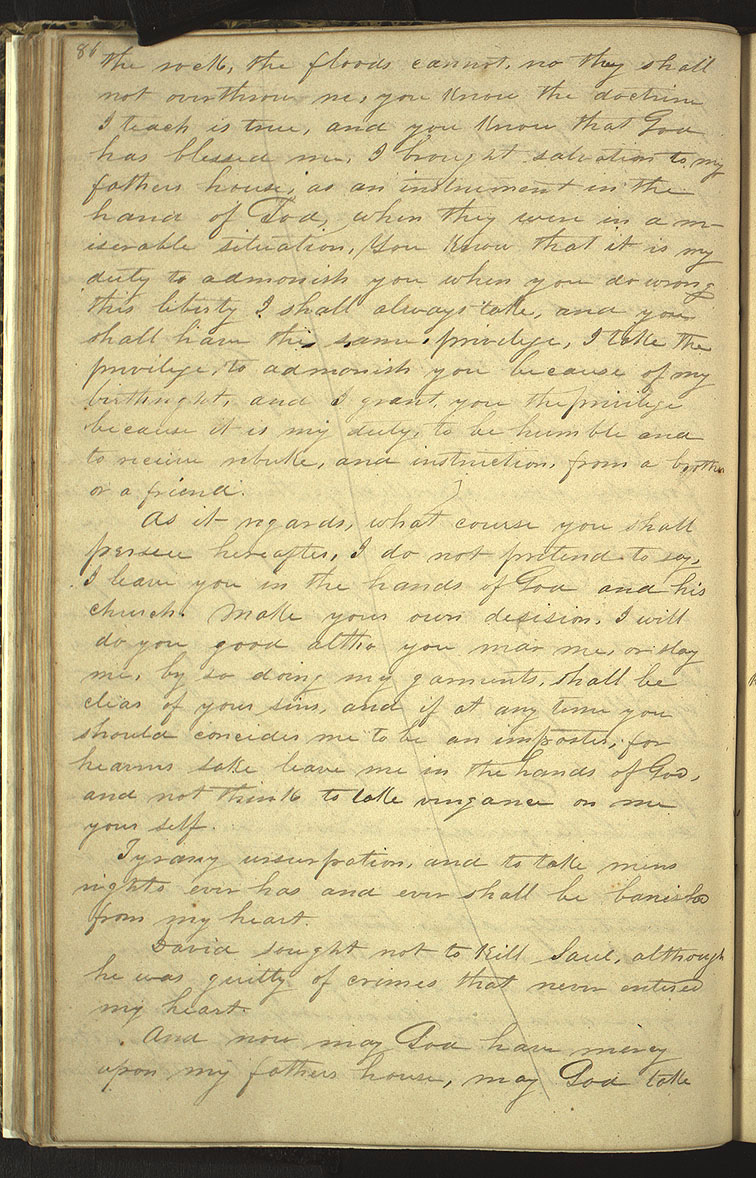 86
the rock, the floods cannot, no they shall
not overthrow me, you know the doctrine
I teach is true, and you know that God
has blessed me, I brought salvation to my
fathers house, as an instrument in the
hand of God, when they were in a m-
iserable situation, You know that it is my
duty to admonish you when you do wrong
this liberty I shall always take, and you
shall have the same privilege, I take the
privilege, to admonish you because of my
birthright, and I grant you the privilege
because it is my duty, to be humble and
to receive rebuke, and instruction, from a brother
or a friend.
As it regards, what course you shall
persue hereafter, I do not pretend to say,
I leave you in the hands of God and his
church. Make your own desision, I will
do you good altho you mar me, or slay
me, by so doing my garments, shall be
clear of your sins, and if at any time you
should concider me to be an imposter, for
heavens sake leave me in the hands of God,
and not think to take vengance on me
your self.
Tyrany ursurpation, and to take mens
rights ever has and ever shall be banished
from my heart.
David sought not to kill Saul, although
he was guilty of crimes that never entered
my heart.
And now may God have mercy
upon my fathers house, may God take